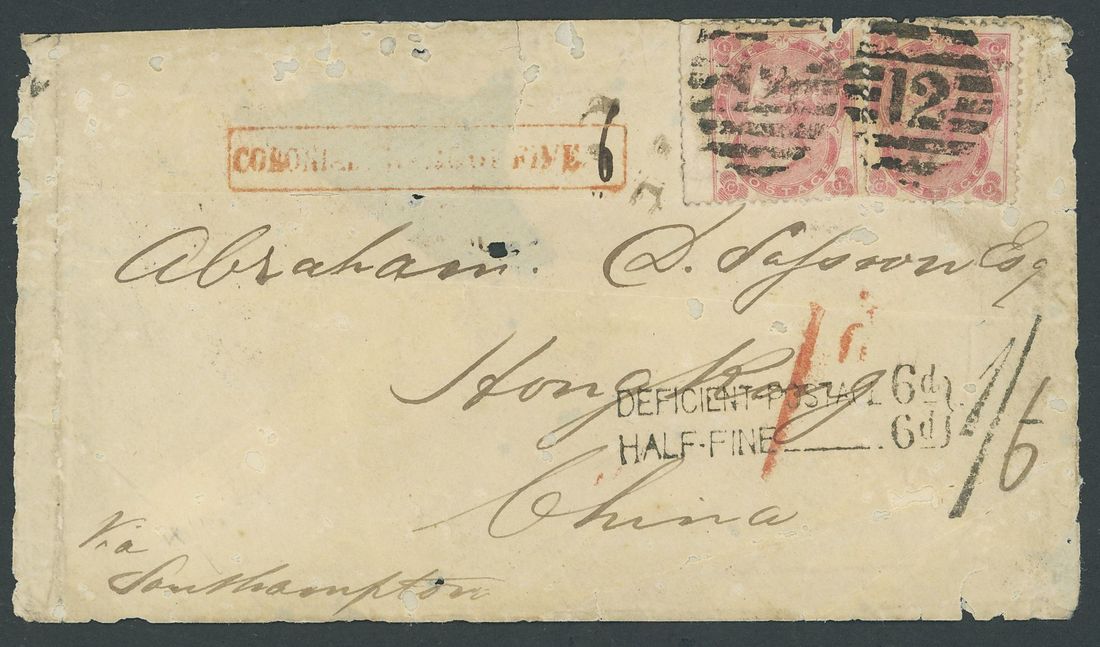 12
12
POSTAGE
COLONIAL FINE
6
Abraham. D. Sassoon Esq
Hong Kong
China
1/
DEFICIENT POSTAGE 6d
HALF-FINE 6d
1/6
Via
Southampton